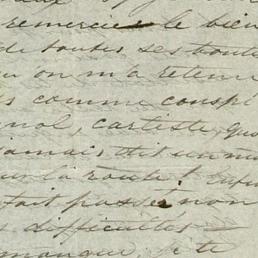 remercier le bien
de toutes ses bonté
qu'on m'a retenu
s comme conspi
gnol, carliste, quo
jamais dit un m
sur la route!
fait passer non
s difficultés
manque, je te